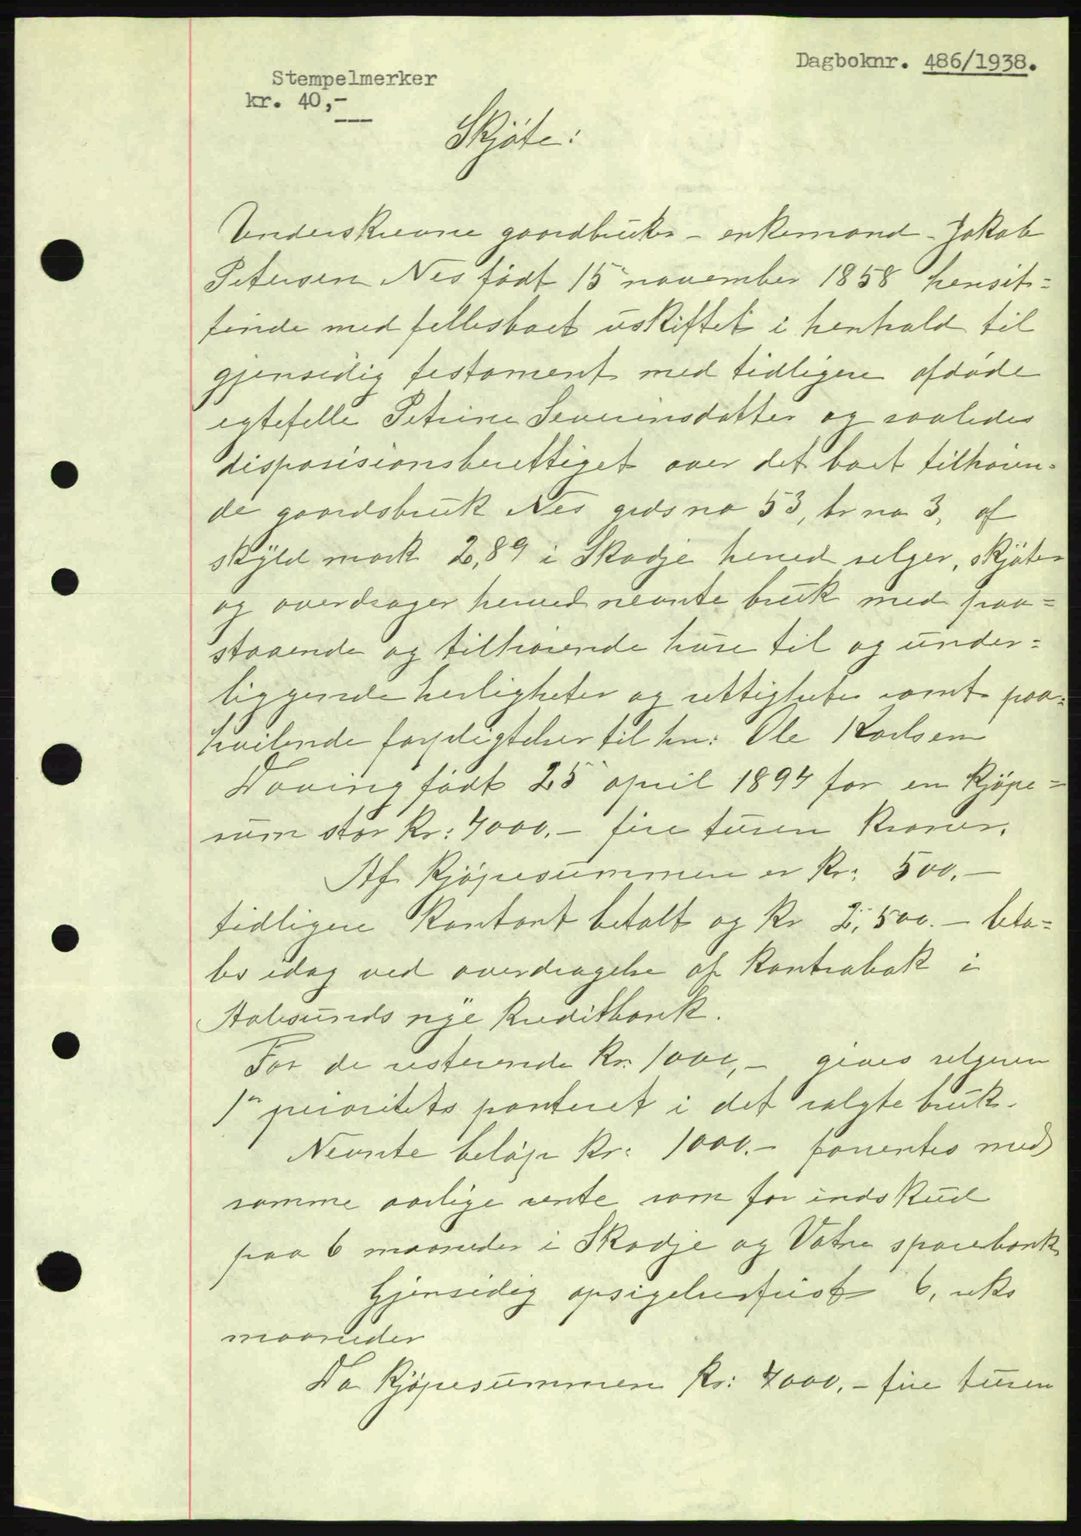 Dagboknr. 486/1938.
Stempelmerker
kr. 40,-
Skjøte:
Underskrevne gaardbruker - enkemand - Jakob
Petersen Nes født 15 november 1858 hensit-
tende med fellesboet uskiftet i henhold til
gjensidig testament med tidligere afdøde
egtefelle Petrine Severinsdatter og saaledes
disposisionsberettiget over det boet tilhøren-
de gaardsbruk Nes grds no 53, br no 3, af
skyld mark 2,89 i Skodje herred selger, skjøter
og overdrager herved nevnte bruk med paa-
staaende og tilhørende huse til og under-
liggende herligheter og rettigheter samt paa-
hvilende forpligtelser til hr: Ole Karlsen
Daving født 25 april 1894 for en kjøpe-
sum stor kr: 4000.- fire tusen kroner.
Af kjøpesummen er kr: 500.-
tidligere kontant betalt og kr 2,500.- beta-
les idag ved overdragelse af kontrabok i
Aalesunds nye kreditbank.
For de resterende kr. 1000,- gives selgeren
1ste prioritets panteret i det solgte bruk.
Nevnte beløp kr: 1000.- forrentes med
samme aarlige rente som for indskud
paa 6 maaneder i Skodje og Vatne sparebank
Gjensidig opsigelsesfrist 6, seks
maaneder
Da kjøpesummen kr: 4000.- fire tusen